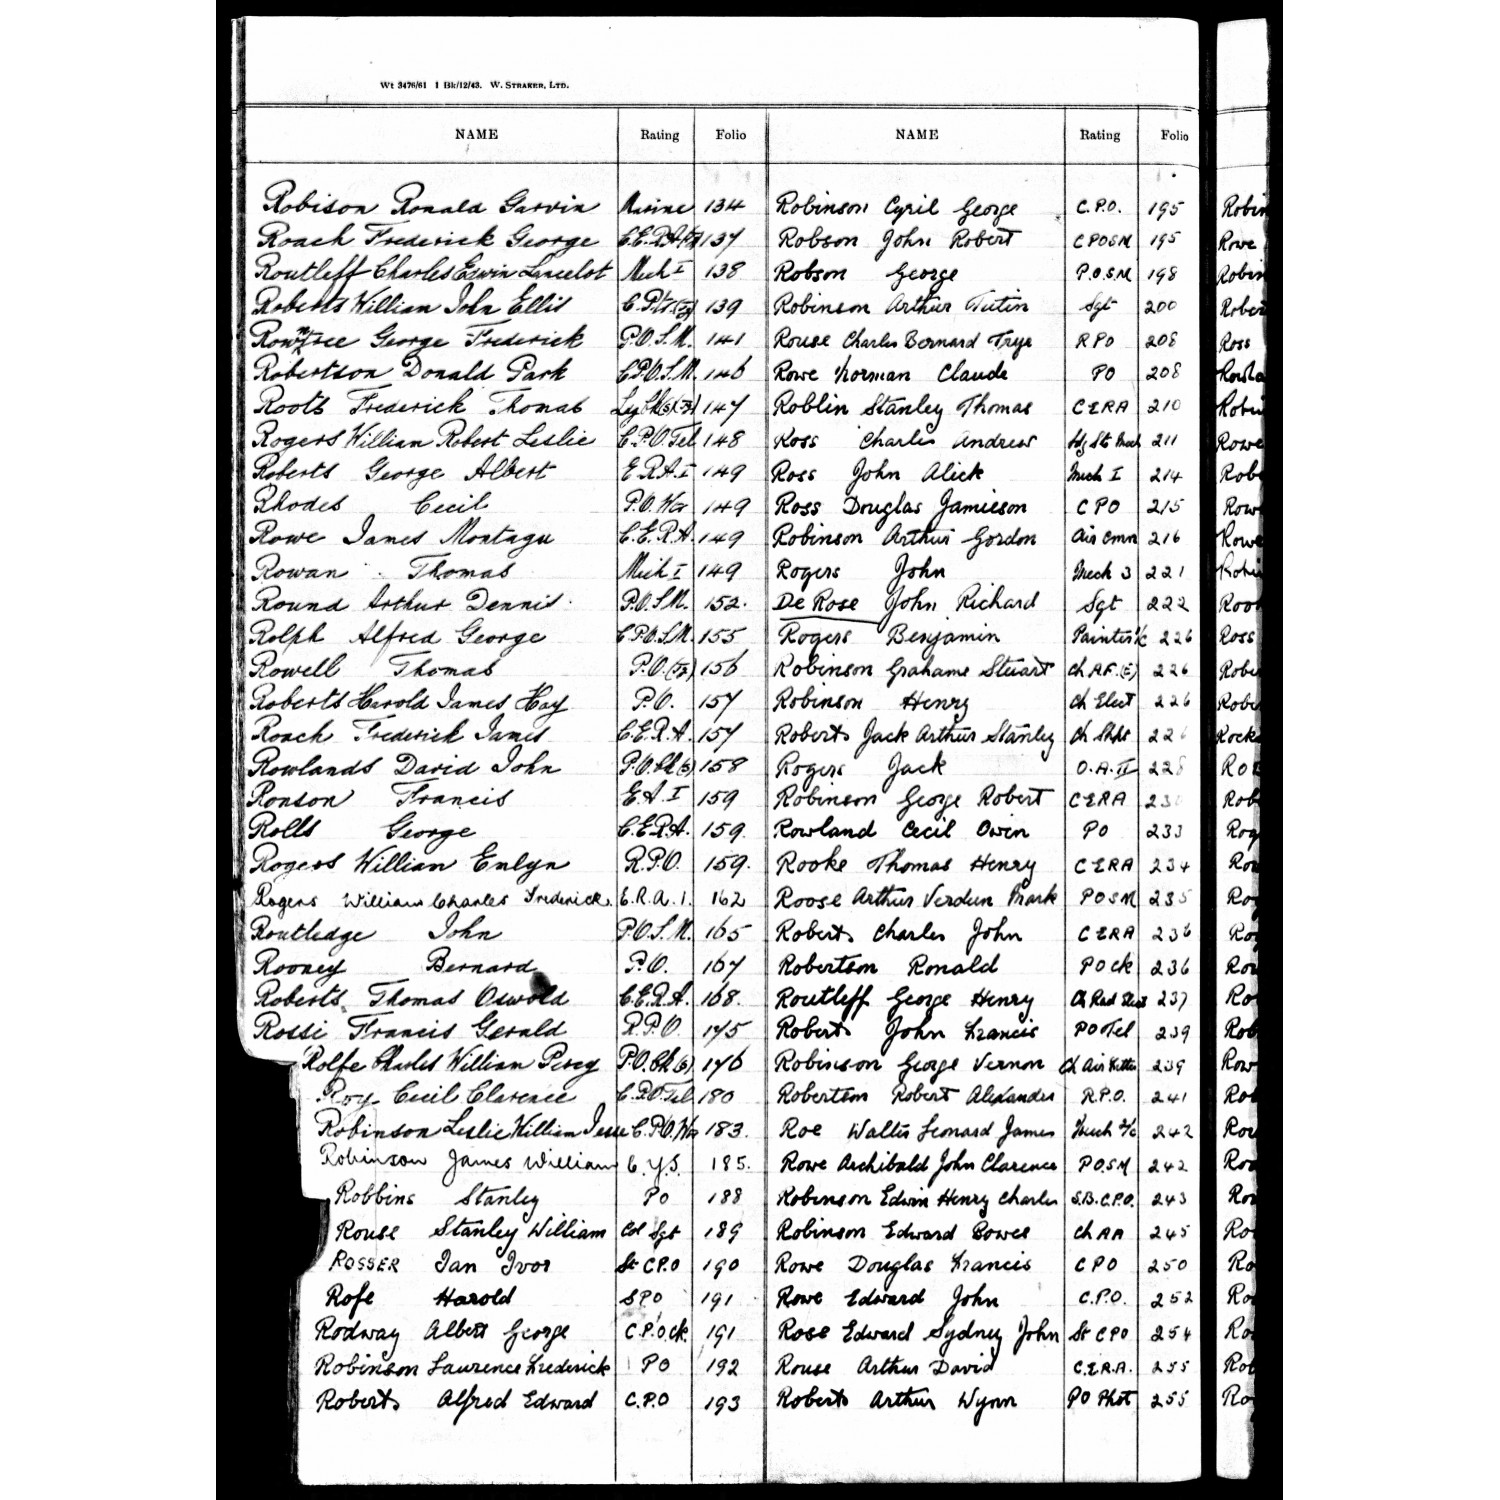 Wt 3476/61 1 Bk/12/43. W. STRAKER, LTD.
NAME Rating Folio NAME Rating Folio
Robison Ronald Garvin Marine 134
Roach Frederick George 137
Routleff Charles Edwin Lancelot Mech I 138
Roberts William John Ellis 139
Rowntree George Frederick P.O.S.M. 141
Robertson Donald Park C.P.O.S.M. 146
Roots Frederick Thomas 147
Rogers William Robert Leslie C.P.O.Tel 148
Roberts George Albert E.R.A.I 149
Rhodes Cecil P.O.Wr 149
Rowe James Montagu C.E.R.A. 149
Rowan Thomas Mech I 149
Round Arthur Dennis P.O.S.M. 152.
Rolph Alfred George C.P.O.S.M. 155
Rowell Thomas P.O. 156
Roberts Harold James Hay P.O. 157
Roach Frederick James C.E.R.A. 157
Rowlands David John P.O.Ck(s) 158
Ronson Francis E.A.I 159
Rolls George C.E.R.A. 159.
Rogers William Emlyn R.P.O. 159.
Rogers William Charles Frederick. E.R.A.1. 162
Routledge John P.O.S.M. 165
Rooney Bernard P.O. 167
Roberts Thomas Oswold C.E.R.A. 168.
Rossi Francis Gerald R.P.O. 175
Rolfe Charles William Percy P.O.Ck(s) 176
Roy Cecil Clarence C.P.O.Tel 180
Robinson Leslie William Jesse C.P.O.Wr 183.
Robinson James William C.Y.S. 185.
Robbins Stanley PO 188
Rouse Stanley William Col Sgt 189
ROSSER Ian Ivor St C.P.O 190
Rofe Harold SPO 191
Rodway Albert George C.P.O.Ck. 191
Robinson Laurence Frederick PO 192
Roberts Alfred Edward C.P.O 193
Robinson Cyril George C.P.O. 195
Robson John Robert CPOSM 195
Robson George P.O.S.M 198
Robinson Arthur Tutin Sgt 200
Rouse Charles Bernard Trye RPO 208
Rowe Norman Claude PO 208
Roblin Stanley Thomas CERA 210
Ross Charles Andrew 211
Ross John Alick Mech I 214
Ross Douglas Jamieson CPO 215
Robinson Arthur Gordon Air Cmn 216
Rogers John Mech 3 221
De Rose John Richard Sgt 222
Rogers Benjamin Painter 226
Robinson Grahame Steuart Ch A.F.(E) 226
Robinson Henry Ch Elect 226
Roberts Jack Arthur Stanley Ch Shpt
Rogers Jack O.A. II 228
Robinson George Robert CERA
Rowland Cecil Owin PO 233
Rooke Thomas Henry CERA 234
Roose Arthur Verdun Mark POSM 235
Roberts Charles John CERA 236
Robertson Ronald PO Ck 236
Routleff George Henry 237
Roberts John Francis PO Tel 239
Robinson George Vernon Ch Air Fitter 239
Robertson Robert Alexander R.P.O. 241
Roe Walter Leonard James Mech 242
Rowe Archibald John Clarence P.O.S.M 242
Robinson Edwin Henry Charles S.B.C.P.O. 243
Robinson Edward Bowes Ch AA 245
Rowe Douglas Francis CPO 250
Rowe Edward John C.P.O. 252
Rose Edward Sydney John St CPO 254
Rouse Arthur David C.E.R.A. 255
Roberts Arthur Wynn PO Phot 255